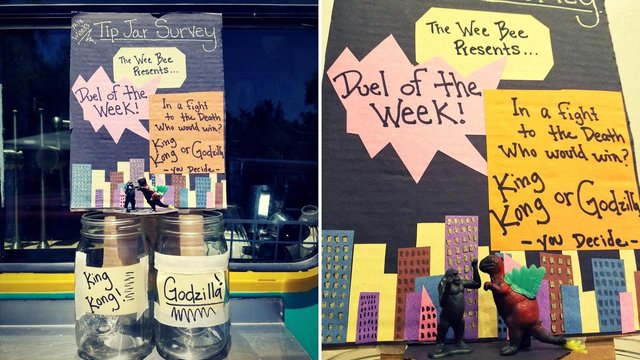 This Week's
Tip Jar Survey
The Wee Bee
Presents...
Duel of the
Week!
In a fight
to the Death
Who would win?
King
Kong or Godzilla
- you Decide -
King
Kong!
Godzilla
Survey
The Wee Bee
Presents...
Duel of the
Week!
In a fight
to the Death
Who would win?
King
Kong or Godzilla
- you Decide -